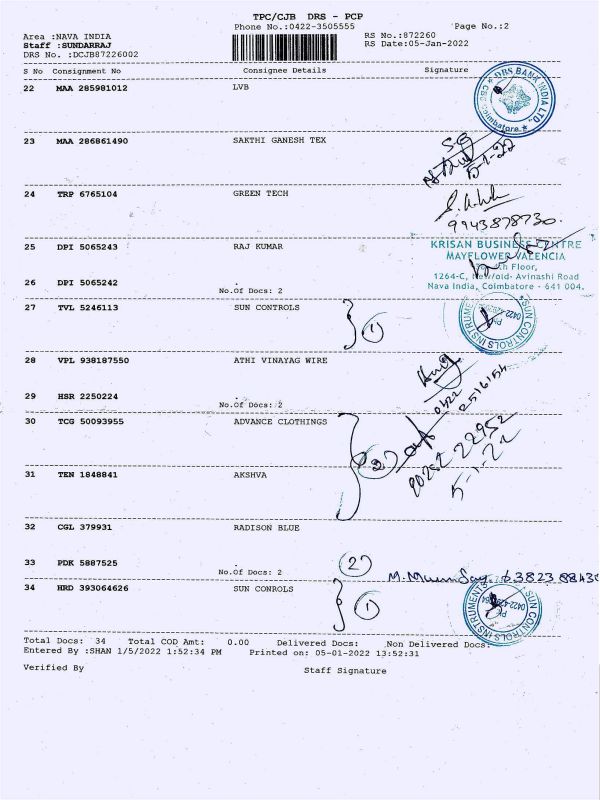 TPC/CJB DRS - PCP
Phone No.:0422-3505555
Page No.:2
Area :NAVA INDIA
RS No.:872260
Staff :SUNDARRAJ
RS Date:05-Jan-2022
DRS No. :DCJB87226002
S No Consignment No Consignee Details Signature
22 MAA 285981012 LVB
DBS BANK INDIA LTD.
Coimbatore
23 MAA 286861490 SAKTHI GANESH TEX
SG
5-1-22
24 TRP 6765104 GREEN TECH
9943878730
25 DPI 5065243 RAJ KUMAR
KRISAN BUSINESS CENTRE
MAYFLOWER VALENCIA
Floor,
1264-C, New/old- Avinashi Road
Nava India, Coimbatore - 641 004.
26 DPI 5065242
No.Of Docs: 2
27 TVL 5246113 SUN CONTROLS
1
SUN CONTROLS INSTRUMENTS
28 VPL 938187550 ATHI VINAYAG WIRE
0422
29 HSR 2250224
No.Of Docs: 2
30 TCG 50093955 ADVANCE CLOTHINGS
2
5-1-22
31 TEN 1848841 AKSHVA
32 CGL 379931 RADISON BLUE
33 PDK 5887525
No.Of Docs: 2
2
63823 88430
34 HRD 393064626 SUN CONROLS
1
SUN CONTROLS INSTRUMENTS
Total Docs: 34 Total COD Amt: 0.00 Delivered Docs: Non Delivered Docs:
Entered By :SHAN 1/5/2022 1:52:34 PM Printed on: 05-01-2022 13:52:31
Verified By Staff Signature